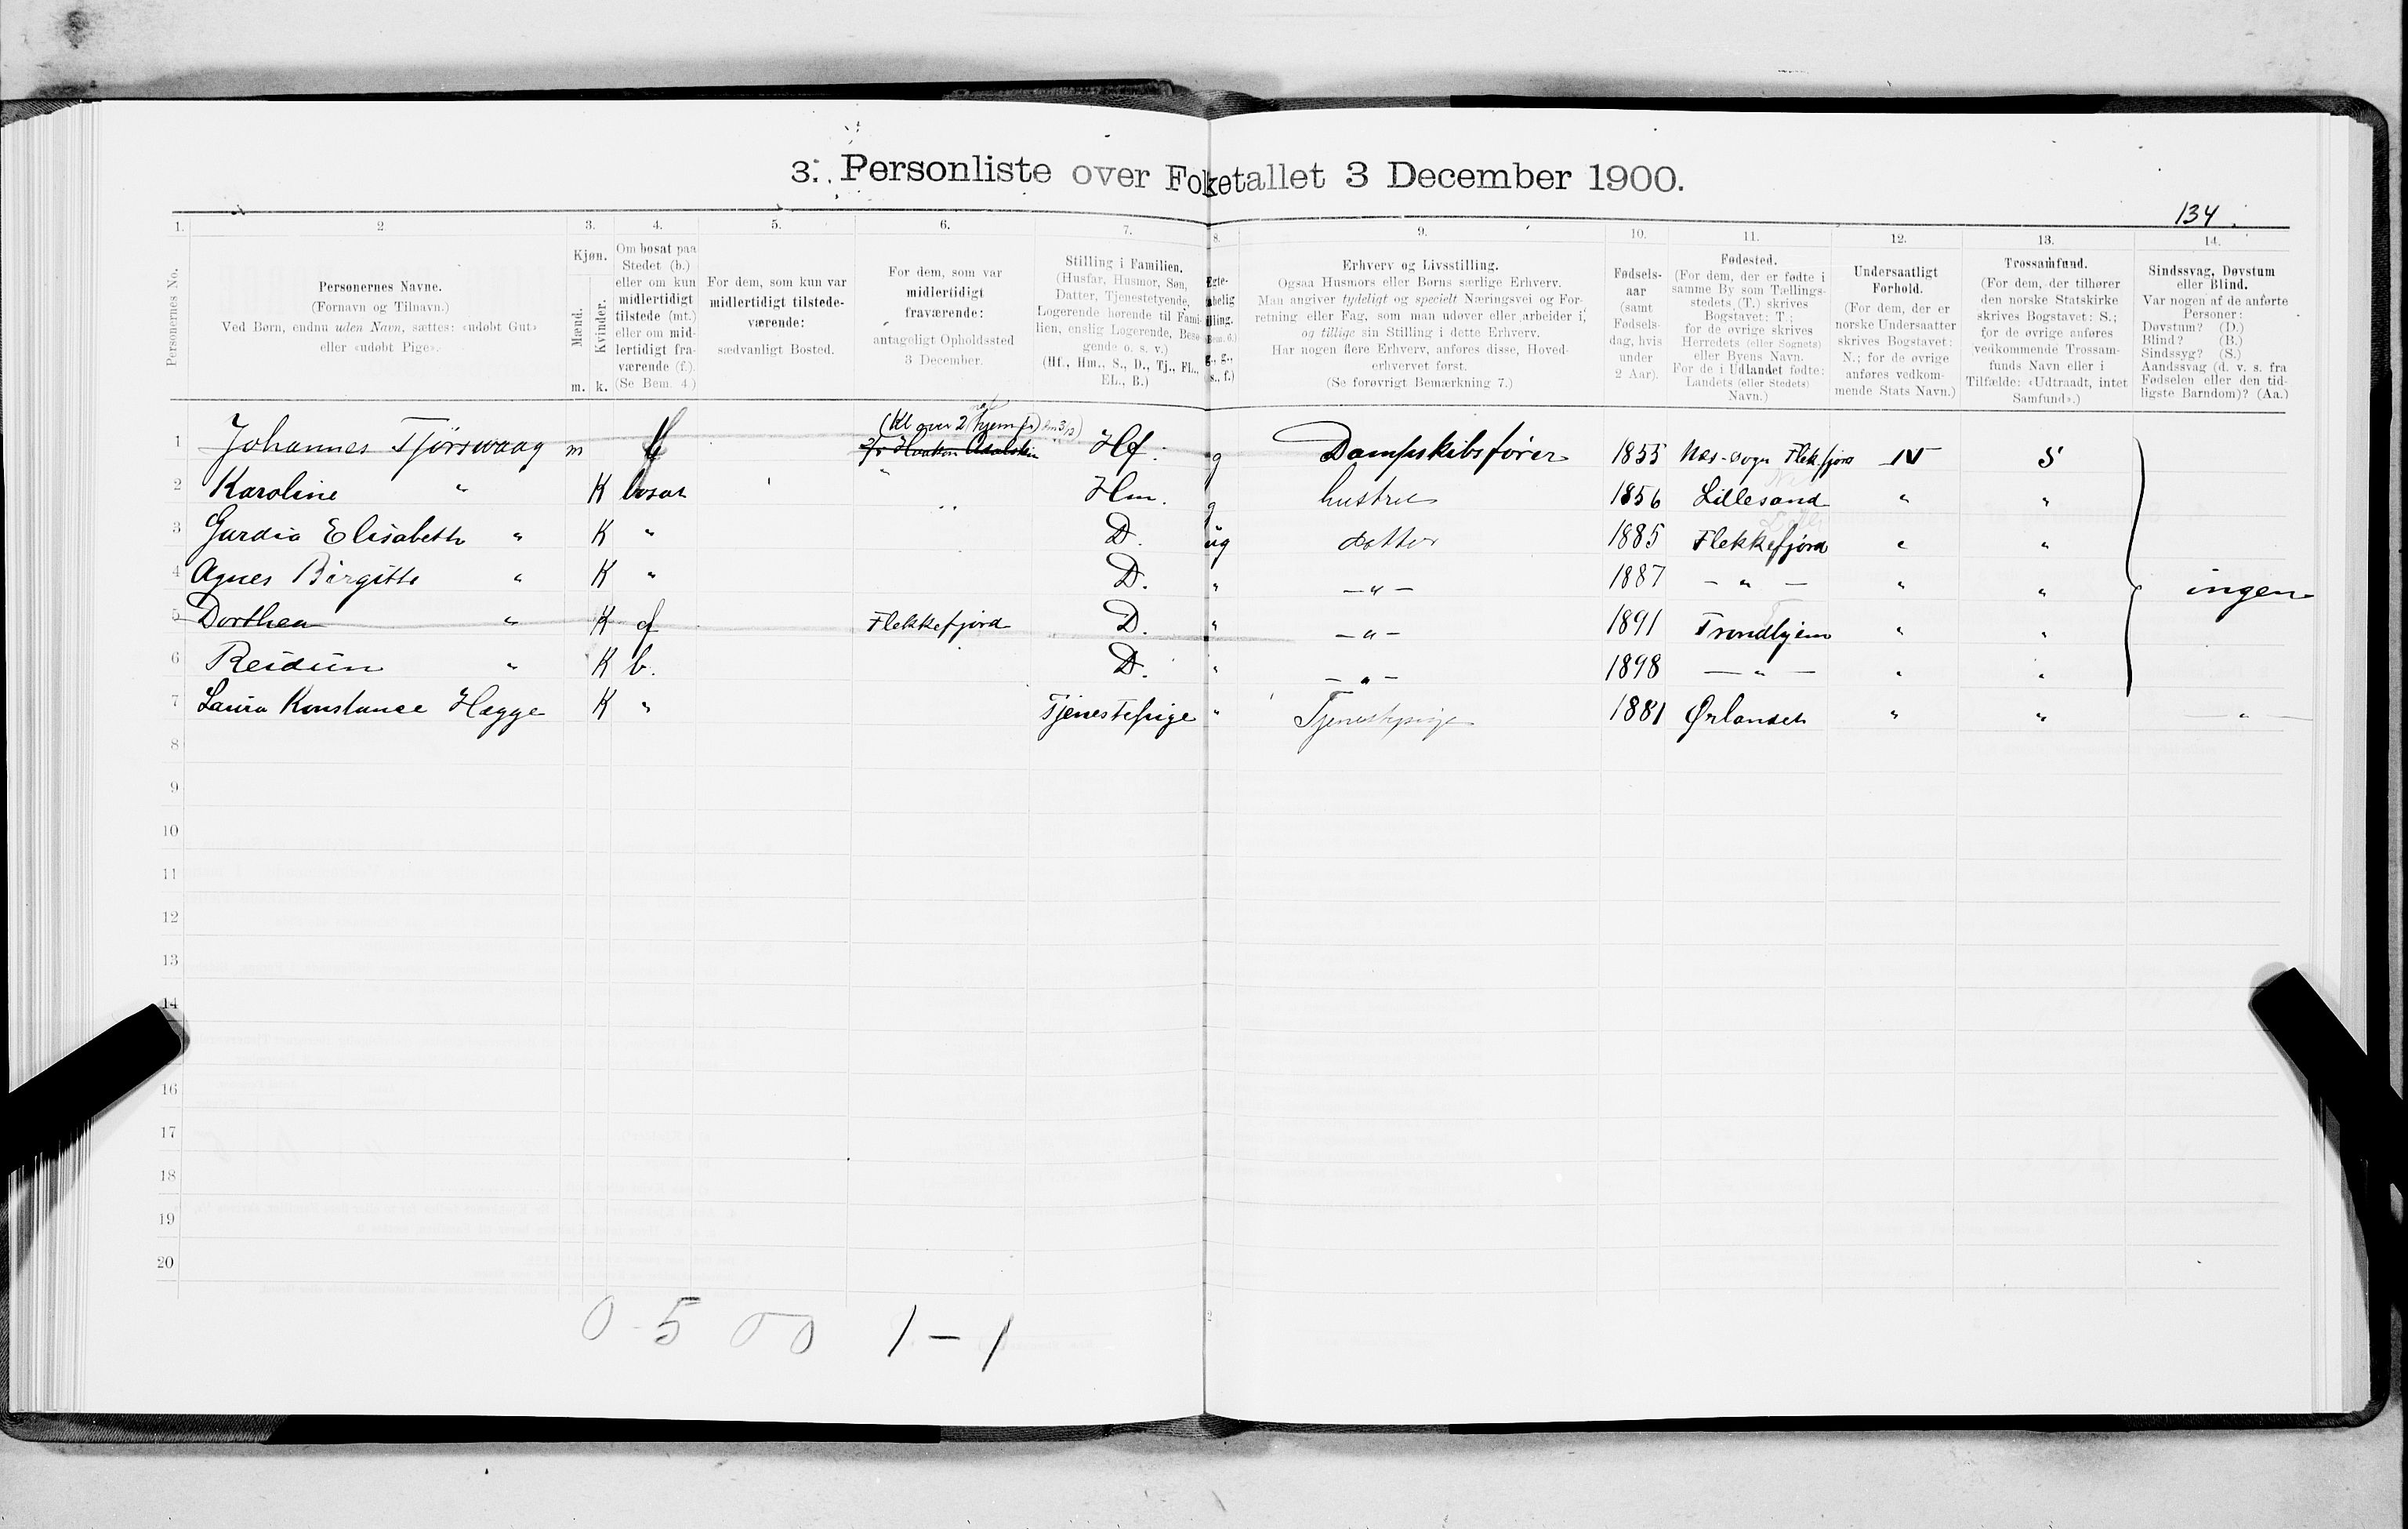 3. Personliste over Folketallet 3 December 1900.
134.
1. 2. 3. 4. 5. 6. 7. 8. 9. 10. 11. 12. 13. 14.
Personernes No.
Personernes Navne.
(Fornavn og Tilnavn.)
Ved Børn, endnu uden Navn, sættes: «udøbt Gut»
eller «udøbt Pige».
Kjøn.
Mænd.
Kvinder.
m. k.
Om bosat paa
Stedet (b.)
eller om kun
midlertidigt
tilstede (mt.)
eller om mid-
lertidigt fra-
værende (f.).
(Se Bem. 4.)
For dem, som kun var
midlertidigt tilstede-
værende:
sædvanligt Bosted.
For dem, som var
midlertidigt
fraværende:
antageligt Opholdssted
3 December.
Stilling i Familien.
(Husfar, Husmor, Søn,
Datter, Tjenestetyende,
Logerende hørende til Fami-
lien, enslig Logerende, Besø-
gende o. s. v.)
(Hf., Hm., S., D., Tj., FL.,
EL., B.)
Egte-
skabelig
Stilling.
(Bem. 6.)
g., g.,
s., f.)
Erhverv og Livsstilling.
Ogsaa Husmors eller Børns særlige Erhverv.
Man angiver tydeligt og specielt Næringsvei og For-
retning eller Fag, som man udøver eller arbeider i,
og tillige sin Stilling i dette Erhverv.
Har nogen flere Erhverv, anføres disse, Hoved-
erhvervet først.
(Se forøvrigt Bemærkning 7.)
Fødsels-
aar
(samt
Fødsels-
dag, hvis
under
2 Aar).
Fødested.
(For dem, der er fødte i
samme By som Tællings-
stedets (T.) skrives
Bogstavet: T.;
for de øvrige skrives
Herredets (eller Sognets)
eller Byens Navn.
For de i Udlandet fødte:
Landets (eller Stedets)
Navn.)
Undersaatligt
Forhold.
(For dem, der er
norske Undersaatter
skrives Bogstavet:
N.; for de øvrige
anføres vedkom-
mende Stats Navn.)
Trossamfund.
(For dem, der tilhører
den norske Statskirke
skrives Bogstavet: S.;
for de øvrige anføres
vedkommende Trossam-
funds Navn eller i
Tilfælde: «Udtraadt, intet
Samfund».)
Sindssvag, Døvstum
eller Blind.
Var nogen af de anførte
Personer:
Døvstum? (D.)
Blind? (B.)
Sindssyg? (S.)
Aandssvag (d. v. s. fra
Fødselen eller den tid-
ligste Barndom)? (Aa.)
(Kl over 2 hjem fr 3/12)
1 Johannes Tjørswaag m f Haakon Adalstein Hf. g Dampskibsfører 1855 Næs-sogn Flekfjord N S
2 Karoline " K bosat " Hm. g hustru 1856 Lillesand " "
3 Gurdia Elisabeth " K " D. ug datter 1885 Flekkefjord " "
4 Agnes Birgitte " K " D. " — " — 1887 — " — " " ingen
5 Dorthea " K f Flekkefjord D. " — " — 1891 Trondhjem " "
6 Reidun " K b. D. " — " — 1898 — " — " "
7 Laura Konstance Hegge K " Tjenestepige " Tjenestepige 1881 Ørlandet " " — " —
8
9
10
11
12
13
14
16
17
18
19
20
0 5 0 0 1 – 1